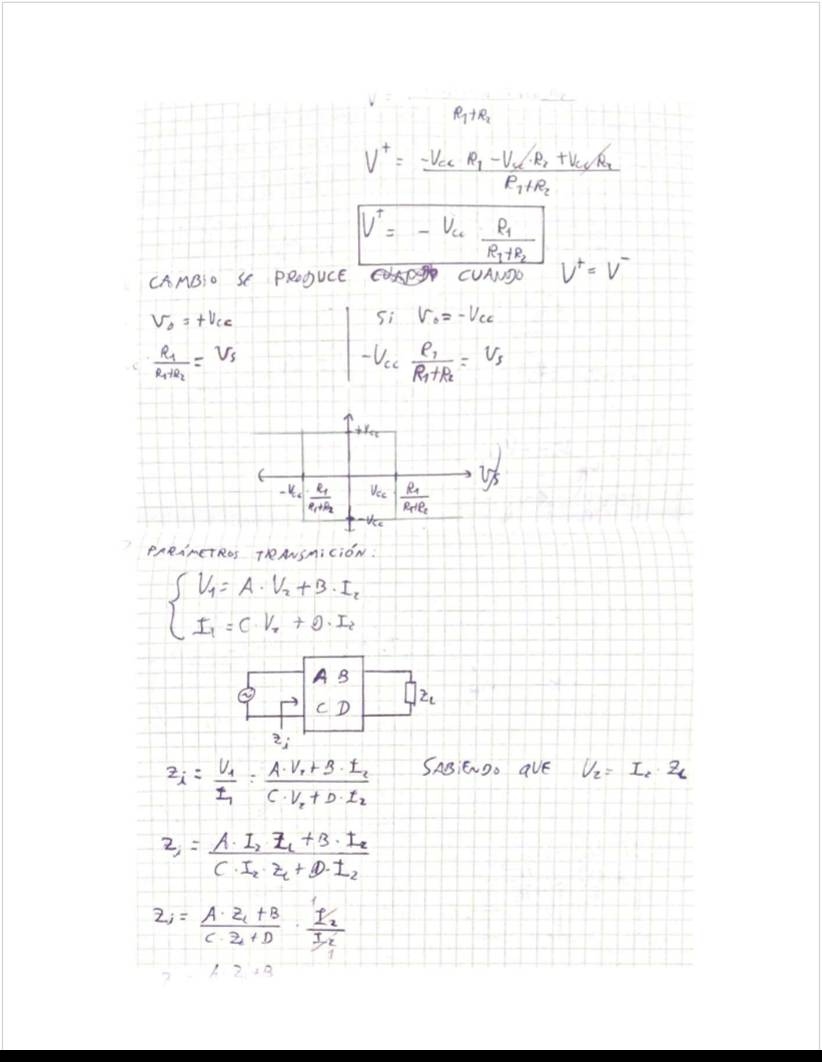 V =
R₁+R₂
V⁺ = (-Vcc R₁ - Vcc·R₂ + Vcc R₂) / (R₁+R₂)
V⁺ = - Vcc R₁ / (R₁+R₂)
CAMBIO SE PRODUCE CUANDO V⁺ = V⁻
V₀ = +Vcc
Si V₀ = -Vcc
R₁ / (R₁+R₂) = Vs
-Vcc R₁ / (R₁+R₂) = Vs
+Vcc
Vs
-Vcc · R₁ / (R₁+R₂)
Vcc R₁ / (R₁+R₂)
-Vcc
PARÁMETROS TRANSMICIÓN:
V₁ = A · V₂ + B · I₂
I₁ = C · V₂ + D · I₂
A B
C D
ZL
Zi
Zi = V₁ / I₁ = (A·V₂ + B·I₂) / (C·V₂ + D·I₂) SABIENDO QUE V₂ = I₂ · ZL
Zi = (A·I₂·ZL + B·I₂) / (C·I₂·ZL + D·I₂)
Zi = (A·ZL + B) / (C·ZL + D) · I₂ / I₂
1
1